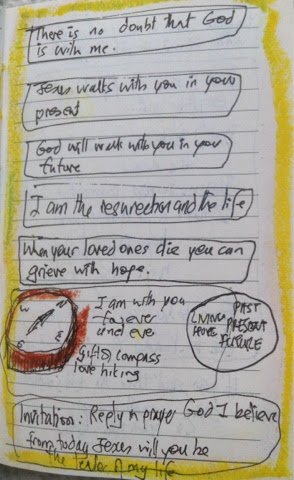 There is no doubt that God
is with me.
Jesus walks with you in your
present
God will walk with you in your
future
I am the resurrection and the life
When your loved ones die you can
grieve with hope.
N
W
E
S
I am with you
forever
and ever
Gift of compass
love hiking
LIVING
HOPE
PAST
PRESENT
FUTURE
Invitation: Reply in prayer God I believe
from today Jesus will you be
the leader of my life